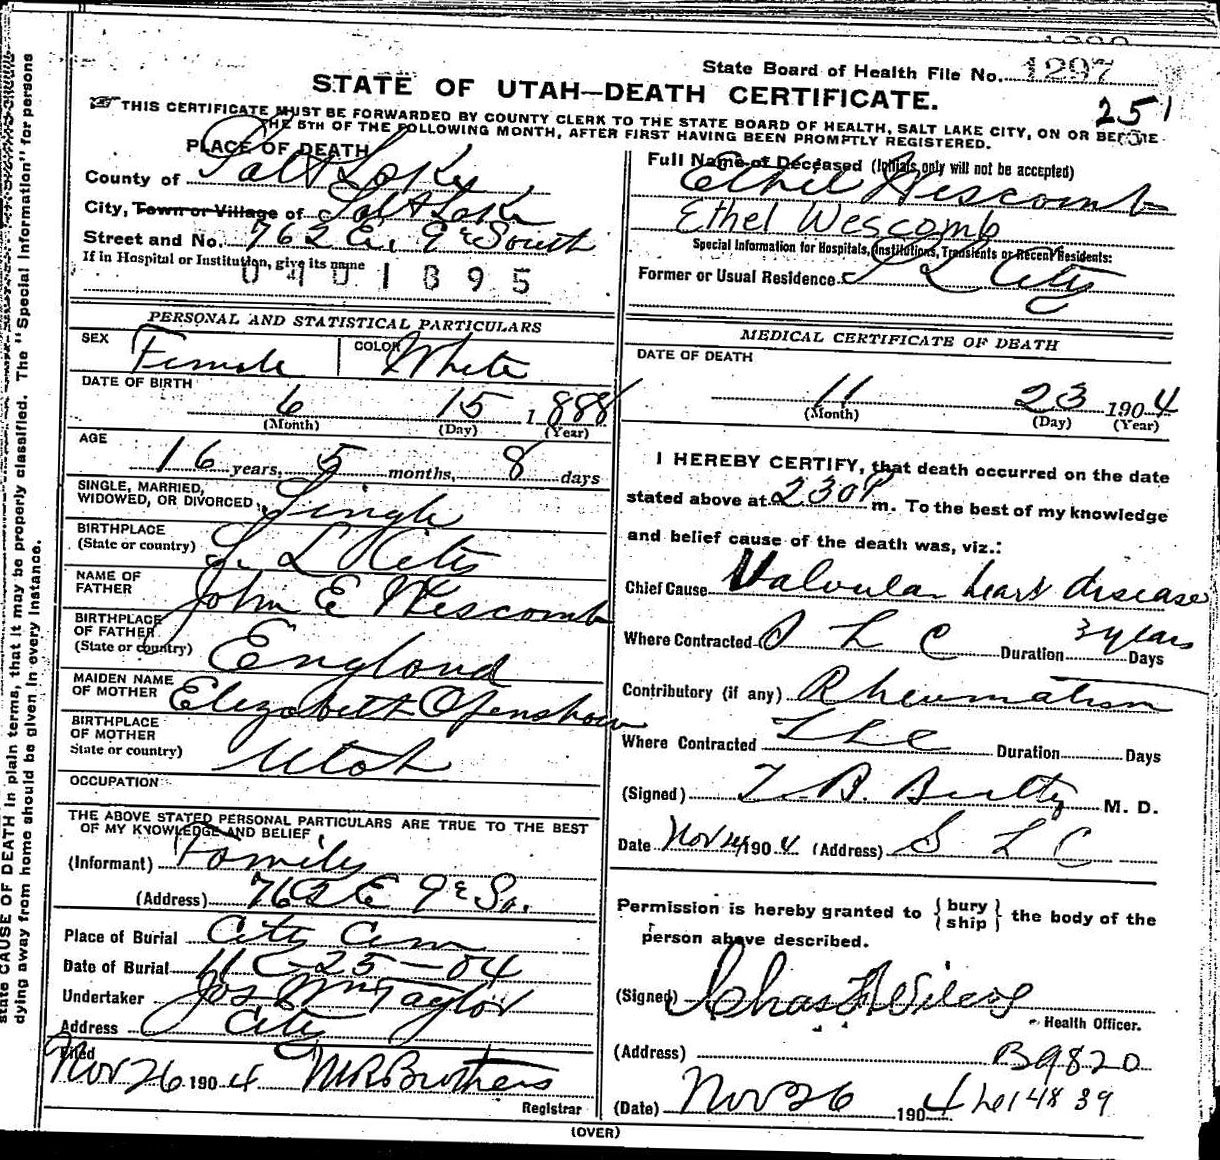 State Board of Health File No. 1297
STATE OF UTAH—DEATH CERTIFICATE.
251
THIS CERTIFICATE MUST BE FORWARDED BY COUNTY CLERK TO THE STATE BOARD OF HEALTH, SALT LAKE CITY, ON OR BEFORE
THE 5TH OF THE FOLLOWING MONTH, AFTER FIRST HAVING BEEN PROMPTLY REGISTERED.
state CAUSE OF DEATH in plain terms, that it may be properly classified. The "Special Information" for persons
dying away from home should be given in every instance.
PLACE OF DEATH
County of Salt Lake
City, Town or Village of Salt Lake
Street and No. 762 E. 9th South
If in Hospital or Institution, give its name
0401895
Full Name of Deceased (Initials only will not be accepted)
Ethel Wescomb
Ethel Wescomb
Special Information for Hospitals, Institutions, Transients or Recent Residents:
Former or Usual Residence S L City
PERSONAL AND STATISTICAL PARTICULARS
SEX Female COLOR White
DATE OF BIRTH
6 15 1888
(Month) (Day) (Year)
AGE
16 years, 5 months, 8 days
SINGLE, MARRIED,
WIDOWED, OR DIVORCED Single
BIRTHPLACE
(State or country) S. L City
NAME OF
FATHER John E Wescomb
BIRTHPLACE
OF FATHER
(State or country) England
MAIDEN NAME
OF MOTHER Elizabeth Openshaw
BIRTHPLACE
OF MOTHER
State or country) Utah
OCCUPATION
THE ABOVE STATED PERSONAL PARTICULARS ARE TRUE TO THE BEST
OF MY KNOWLEDGE AND BELIEF
(Informant) Family
(Address) 762 E 9th So.
Place of Burial City Cem
Date of Burial 11-25-04
Undertaker Jos Wm Taylor
Address City
Filed
Nov 26 1904 Brothers
Registrar
MEDICAL CERTIFICATE OF DEATH
DATE OF DEATH
11 23 1904
(Month) (Day) (Year)
I HEREBY CERTIFY, that death occurred on the date
stated above at 230 P m. To the best of my knowledge
and belief cause of the death was, viz.:
Chief Cause Valvular heart disease
Where Contracted S L C Duration 3 years Days
Contributory (if any) Rheumatism
Where Contracted S L C Duration Days
(Signed) T. B. Beatty M. D.
Date Nov 24 1904 (Address) S L C
Permission is hereby granted to {bury ship} the body of the
person above described.
(Signed) Chas Wilcox
Health Officer.
(Address) B9820
(Date) Nov 26 1904
(OVER)